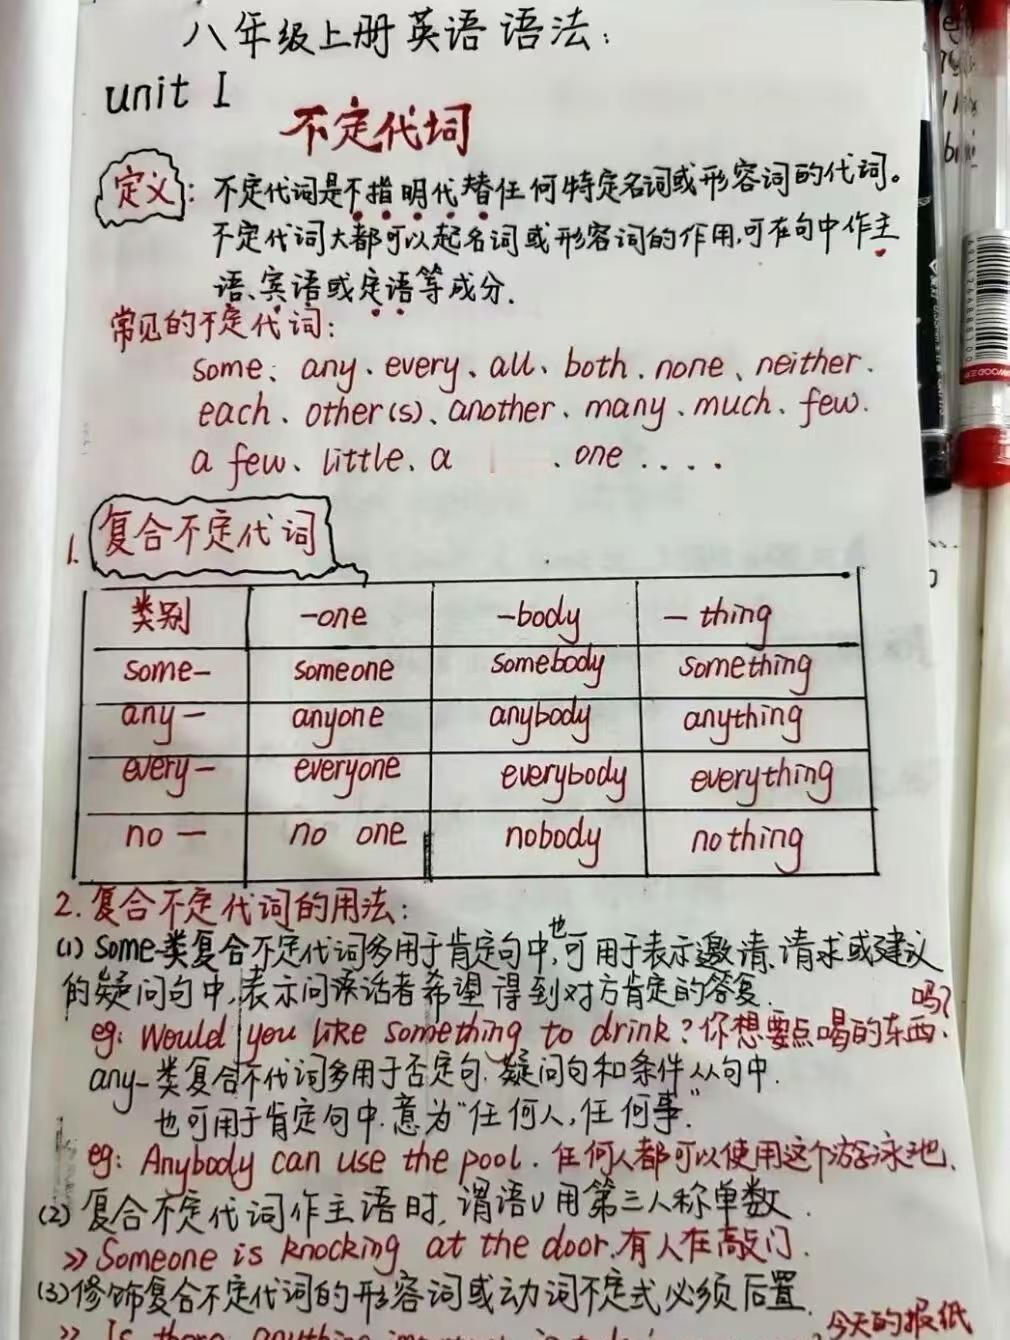 八年级上册英语语法:
unit 1
不定代词
定义: 不定代词是不指明代替任何特定名词或形容词的代词。
不定代词大都可以起名词或形容词的作用,可在句中作主
语、宾语或定语等成分.
常见的不定代词:
some、any、every、all、both、none、neither.
each、other(s)、another、many、much、few.
a few、little、a 、one ....
1. 复合不定代词
类别 -one -body - thing
some- someone somebody something
any- anyone anybody anything
every- everyone everybody everything
no- no one nobody nothing
2. 复合不定代词的用法:
(1) Some-类复合不定代词多用于肯定句中,也可用于表示邀请、请求或建议
的疑问句中,表示问话者希望得到对方肯定的答复.
eg: Would you like something to drink? 你想要点喝的东西吗?
any-类复合不代词多用于否定句.疑问句和条件从句中.
也可用于肯定句中.意为"任何人,任何事"
eg: Anybody can use the pool. 任何人都可以使用这个游泳池.
(2) 复合不定代词作主语时,谓语v用第三人称单数.
>> Someone is knocking at the door. 有人在敲门.
(3) 修饰复合不定代词的形容词或动词不定式必须后置.
>> Is there anything important in today's 今天的报纸